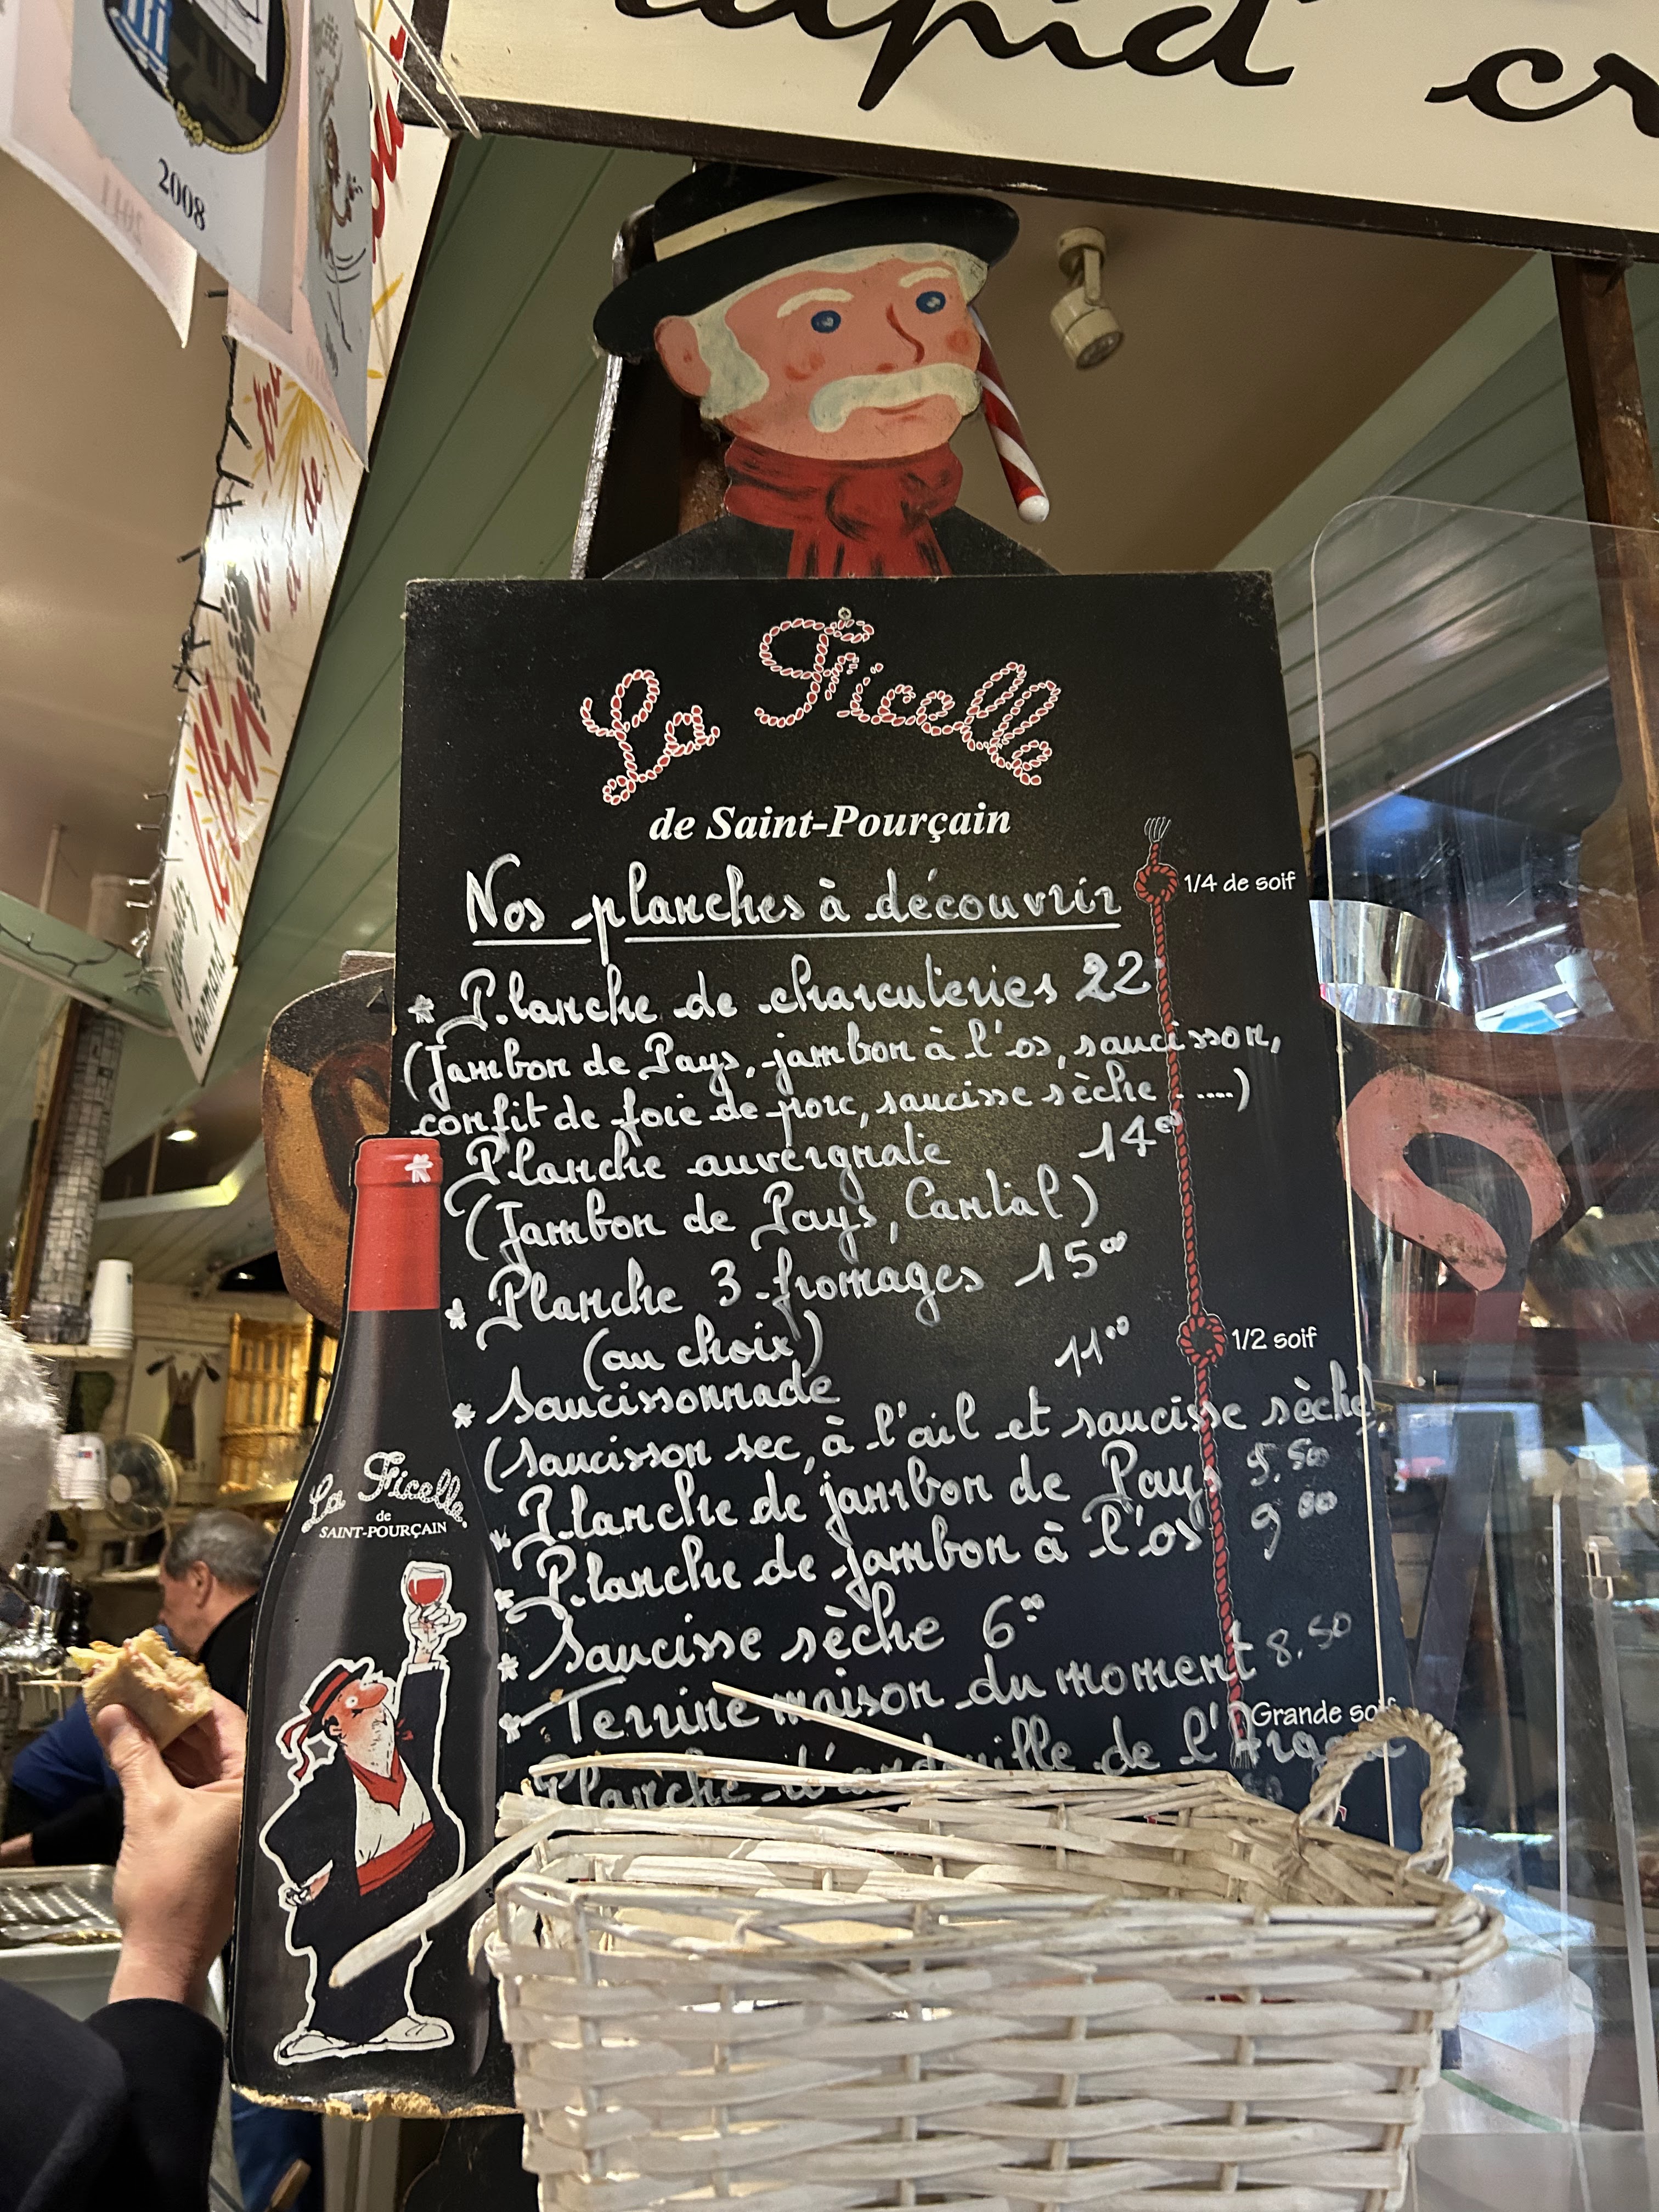 2008
La Ficelle
de Saint-Pourçain
1/4 de soif
Nos planches à découvrir
* Planche de charcuteries 22
(Jambon de Pays, jambon à l'os, saucisson,
confit de foie de porc, saucisse sèche .....)
* Planche auvergnate 14 00
(Jambon de Pays, Cantal)
* Planche 3 fromages 15 00
(au choix)
1/2 soif
* Saucissonnade 11 00
(saucisson sec, à l'ail et saucisse sèche)
* Planche de jambon de Pays 9.50
* Planche de jambon à l'os 9 00
* Saucisse sèche 6 00
* Terrine maison du moment 8.50
Grande soif
Planche d'andouille de l'
La Ficelle
de
SAINT-POURÇAIN